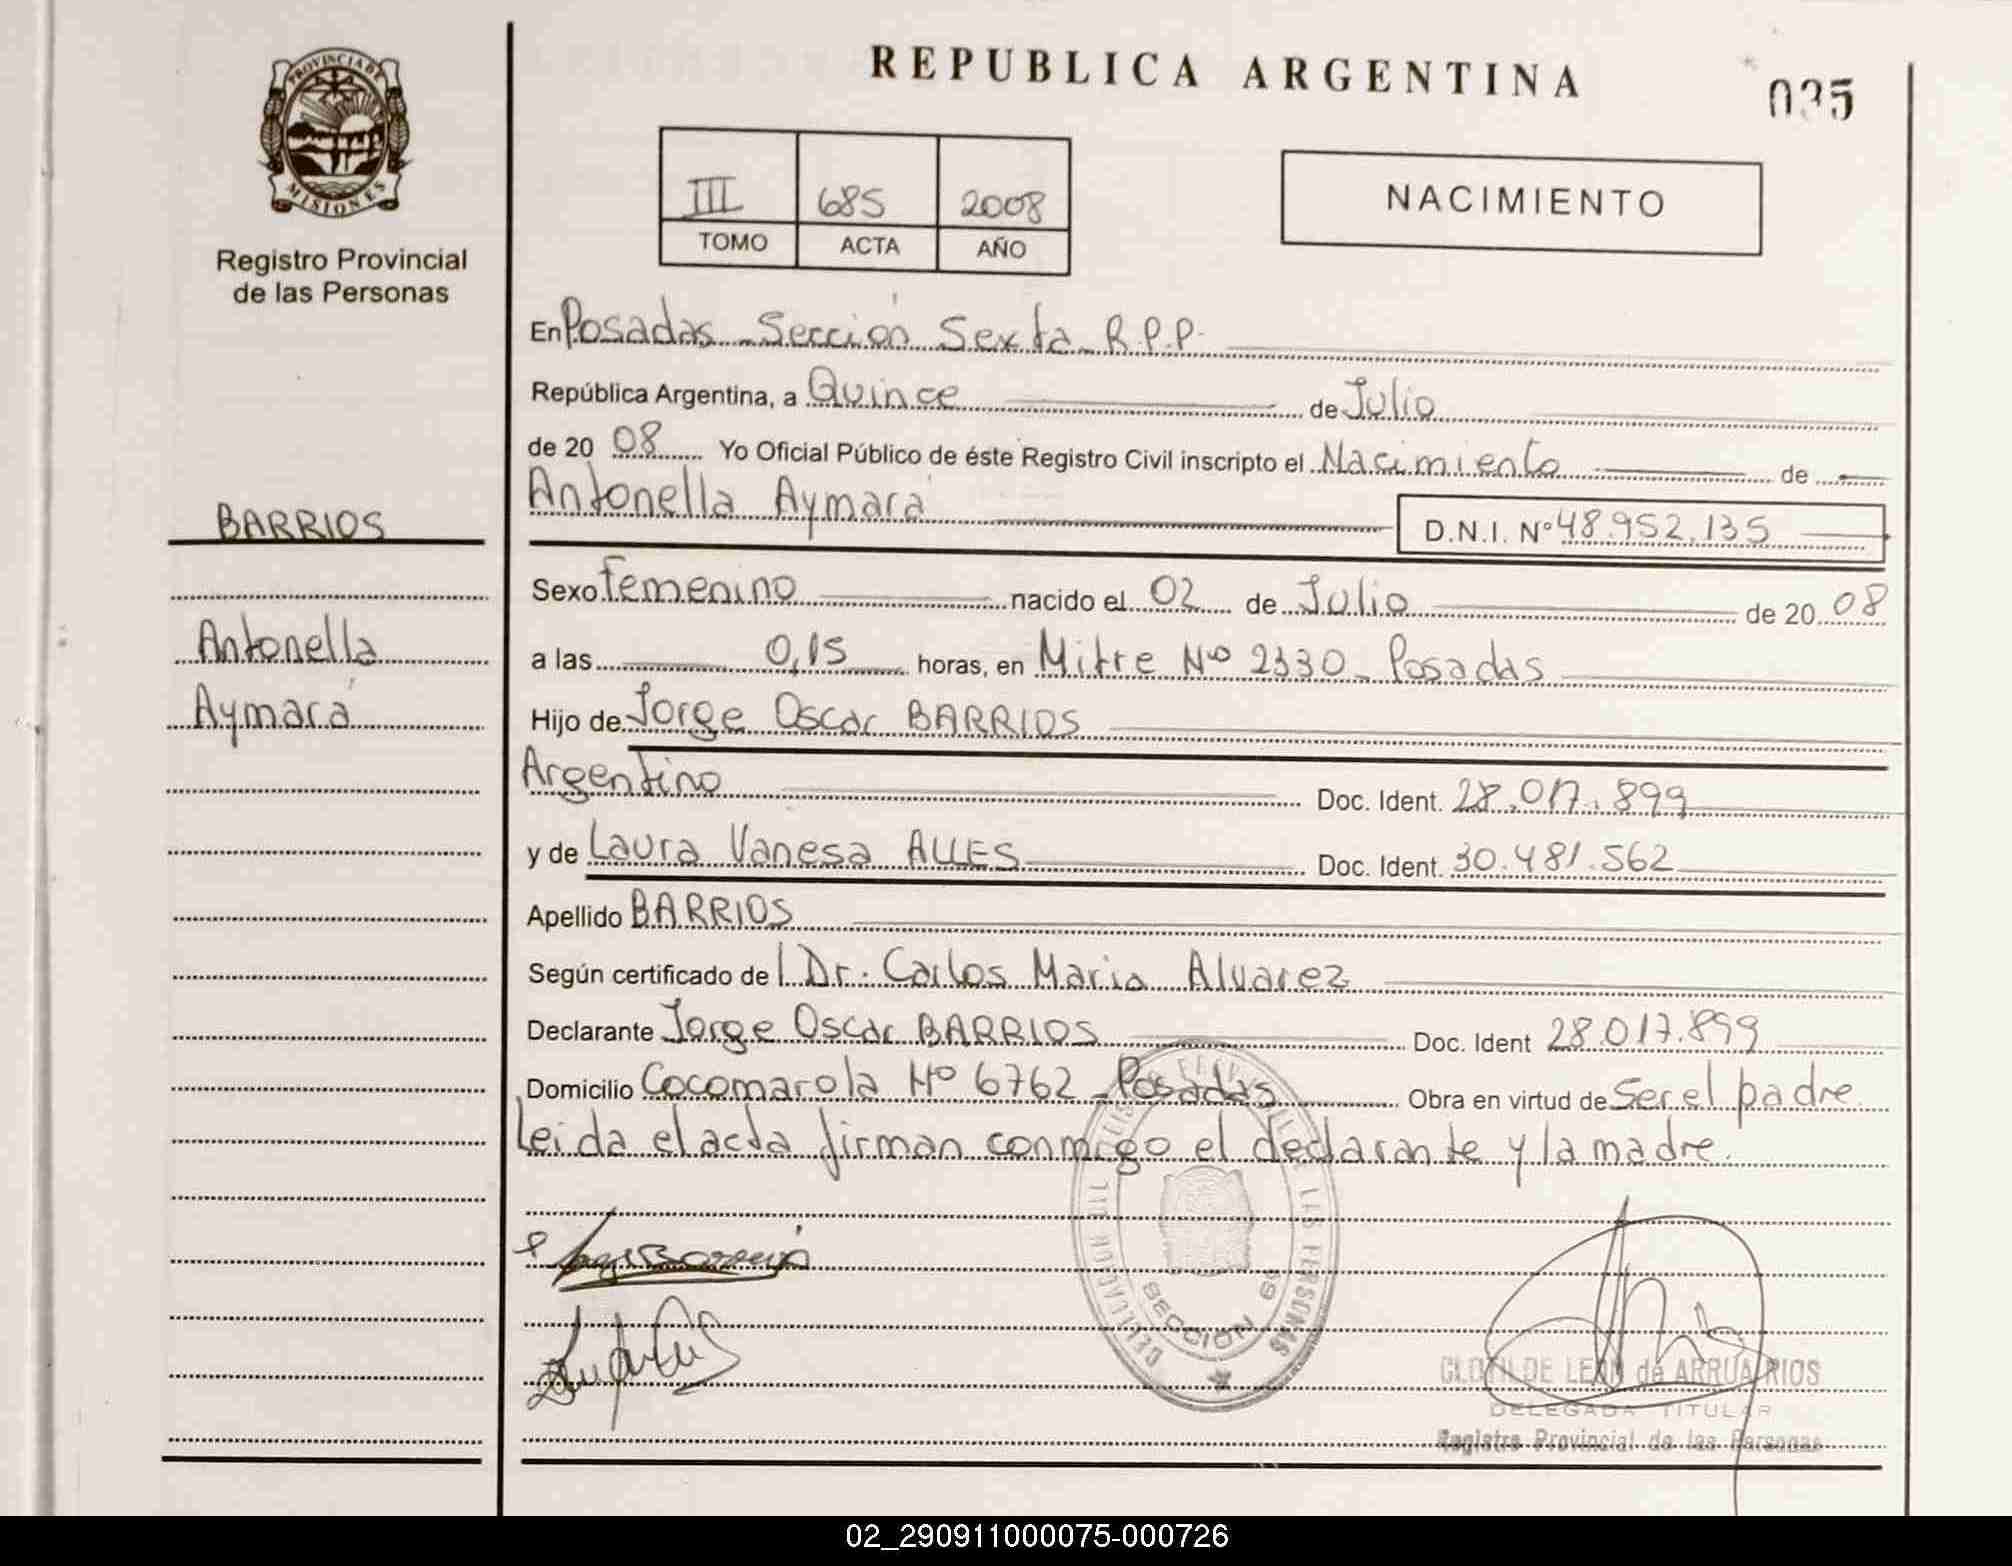 REPUBLICA ARGENTINA
035
PROVINCIA DE
MISIONES
Registro Provincial
de las Personas
III 685 2008
TOMO ACTA AÑO
NACIMIENTO
En Posadas - Sección Sexta - R.P.P.
República Argentina, a Quince de Julio
de 20 08 Yo Oficial Público de éste Registro Civil inscripto el Nacimiento de
BARRIOS
Antonella Aymará
D.N.I. Nº 48.952.135
Sexo Femenino nacido el 02 de Julio de 20 08
Antonella
a las 0,15 horas, en Mitre Nº 2330 - Posadas
Aymará
Hijo de Jorge Oscar BARRIOS
Argentino Doc. Ident. 28.017.899
y de Laura Vanesa ALLES Doc. Ident. 30.481.562
Apellido BARRIOS
Según certificado de l Dr. Carlos Maria Alvarez
Declarante Jorge Oscar BARRIOS Doc. Ident 28.017.899
Domicilio Cocomarola Nº 6762 - Posadas Obra en virtud de Ser el padre
Leida el acta firman conmigo el declarante y la madre.
SECCION 6ª
CLOTILDE LEON de ARRUA RIOS
DELEGADA TITULAR
Registro Provincial de las Personas
02_290911000075-000726